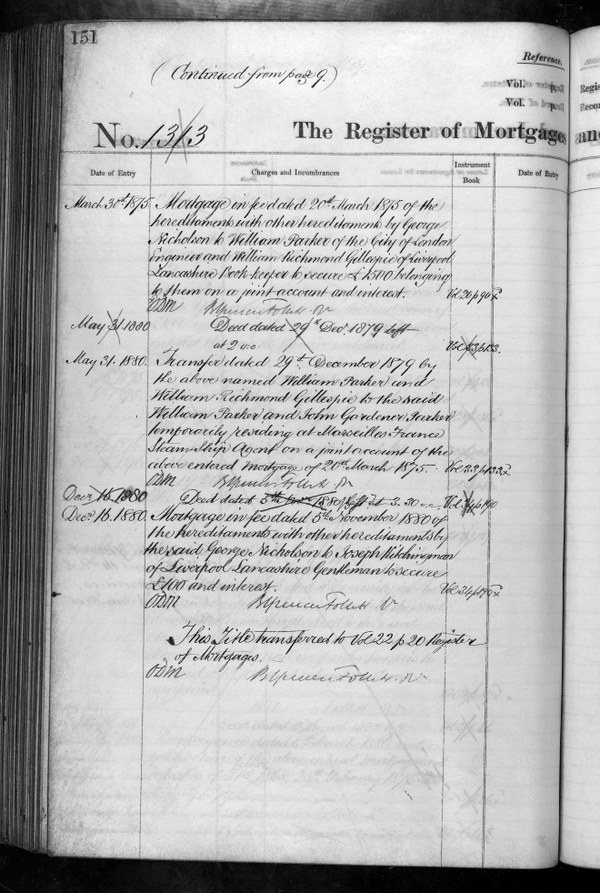 151
Reference.
(Continued from page 9.)
Vol. p.
Vol. p.
No. 1313 The Register of Mortgage and
Date of Entry Charges and Incumbrances Instrument Book Date of Entry
March 30th 1875. Mortgage in fee dated 20th March 1875 of the
hereditaments with other hereditaments by George
Nicholson to William Parker of the City of London
Engineer and William Richmond Gillespie of Liverpool
Lancashire Book-keeper to secure £1500 belonging
to them on a joint account and interest. Vol 20 p 90
ODM
May 31. 1880. Deed dated 29th Decr. 1879 left
at 2 Vol 33 p 133.
May 31. 1880. Transfer dated 29th December 1879 by
the above named William Parker and
William Richmond Gillespie to the said
William Parker and John Gardener Parker
temporarily residing at Marseilles France
Steam Ship Agent on a joint account of the
above entered Mortgage of 20th March 1875. Vol 33 p 133
ODM
Decr 16. 1880 Deed dated 5th 1880 left at 3.30 Vol 34 p 190
Decr 16. 1880. Mortgage in fee dated 5th November 1880 of
the hereditaments with other hereditaments by
the said George Nicholson to Joseph Kitchingman
of Liverpool Lancashire Gentleman to secure
£100 and interest. Vol 34 p 190
ODM
This Title transferred to Vol 22 p 20 Register
of Mortgages.
ODM